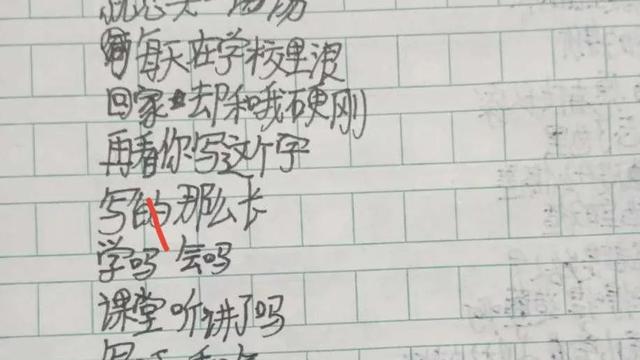 每天在学校里浪
回家却和哦硬刚
再看你写这个字
写的那么长
学吗会吗
课堂听讲了吗